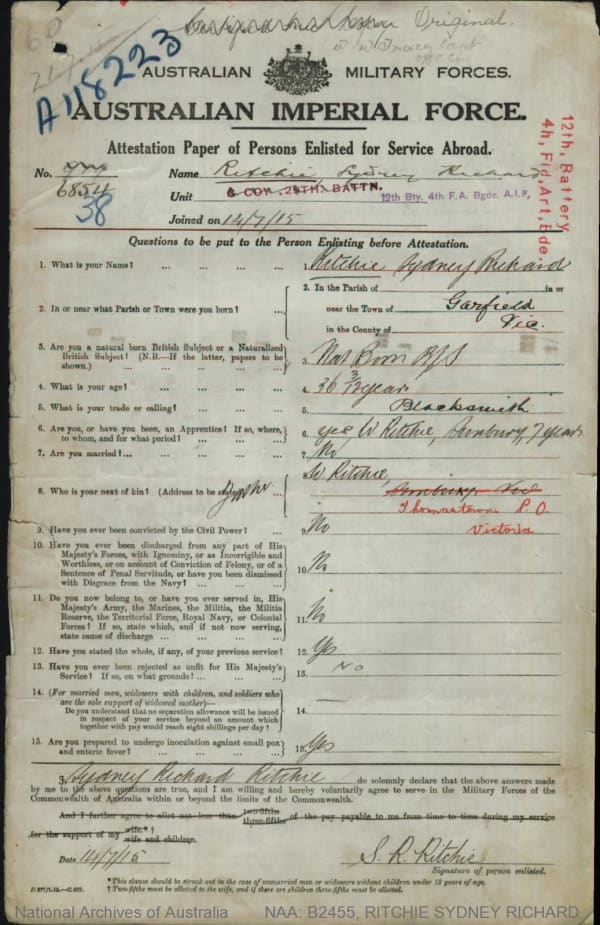 Original.
60
A118223
AUSTRALIAN MILITARY FORCES.
AUSTRALIAN IMPERIAL FORCE.
Attestation Paper of Persons Enlisted for Service Abroad.
12th, Battery
4h, Fld, Art, Bde.
No. 6854
38
Name Ritchie, Sydney Richard
Unit G COY. 29TH. BATTN. 12th Bty. 4th F.A. Bgde. A.I.F,
Joined on 14/7/15
Questions to be put to the Person Enlisting before Attestation.
1. What is your Name? ... ... ... 1. Ritchie Sydney Richard
2. In or near what Parish or Town were you born? ... 2. In the Parish of in or
near the Town of Garfield
in the County of Vic.
3. Are you a natural born British Subject or a Naturalized
British Subject? (N.B.—If the latter, papers to be
shown.) ... ... ... ... 3. Nat Born B/S
4. What is your age? ... ... ... 4. 36 3/12 years
5. What is your trade or calling? ... ... 5. Blacksmith
6. Are you, or have you been, an Apprentice? If so, where,
to whom, and for what period? ... ... 6. yes W Ritchie, Sunbury, 7 years
7. Are you married?... ... ... ... 7. No
8. Who is your next of kin? (Address to be stated) 8. W Ritchie,
Sunbury Vic
Thomastown P.O.
Victoria
9. Have you ever been convicted by the Civil Power? ... 9. No
10. Have you ever been discharged from any part of His
Majesty's Forces, with Ignominy, or as Incorrigible and
Worthless, or on account of Conviction of Felony, or of a
Sentence of Penal Servitude, or have you been dismissed
with Disgrace from the Navy? ... ... 10. No
11. Do you now belong to, or have you ever served in, His
Majesty's Army, the Marines, the Militia, the Militia
Reserve, the Territorial Force, Royal Navy, or Colonial
Forces? If so, state which, and if not now serving,
state cause of discharge ... ... ... 11. No
12. Have you stated the whole, if any, of your previous service? 12. Yes
13. Have you ever been rejected as unfit for His Majesty's
Service? If so, on what grounds? ... ... 13. No
14. (For married men, widowers with children, and soldiers who
are the sole support of widowed mother)—
Do you understand that no separation allowance will be issued
in respect of your service beyond an amount which
together with pay would reach eight shillings per day? 14. —
15. Are you prepared to undergo inoculation against small pox
and enteric fever? ... ... ... 15. Yes
I, Sydney Richard Ritchie do solemnly declare that the above answers made
by me to the above questions are true, and I am willing and hereby voluntarily agree to serve in the Military Forces of the
Commonwealth of Australia within or beyond the limits of the Commonwealth.
And I further agree to allot not less than two-fifths three-fifths of the pay payable to me from time to time during my service
for the support of my wife.*†
wife and children.
Date 14/7/15 S. R. Ritchie
Signature of person enlisted.
*This clause should be struck out in the case of unmarried men or widowers without children under 18 years of age.
† Two-fifths must be allotted to the wife, and if there are children three-fifths must be allotted.
National Archives of Australia NAA: B2455, RITCHIE SYDNEY RICHARD